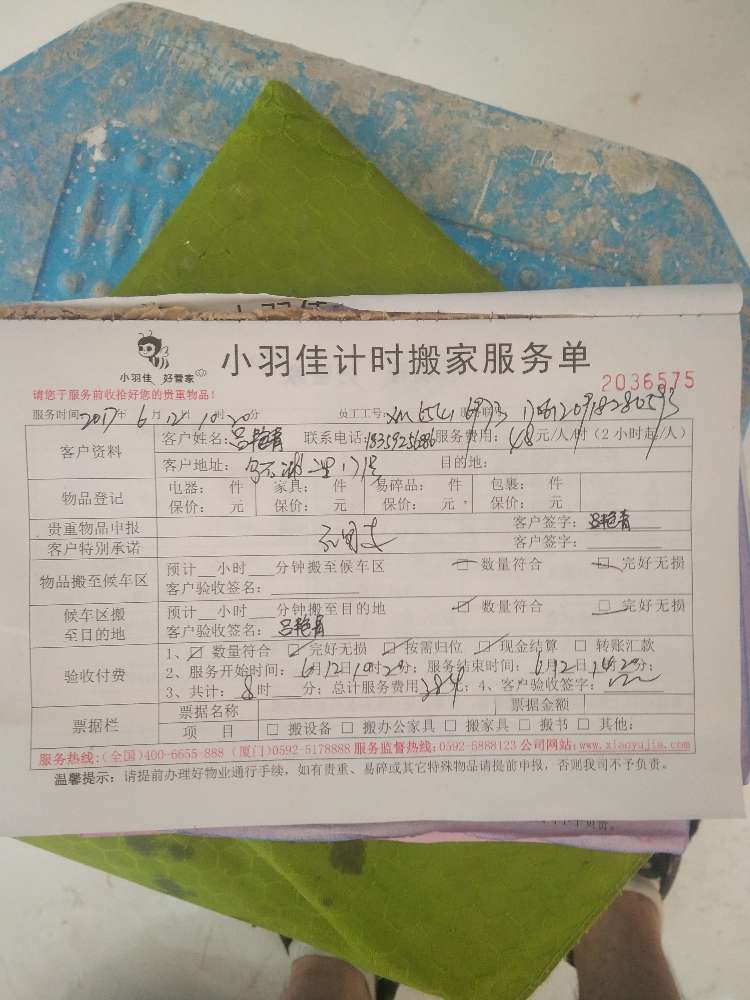 小羽佳
小羽佳 好管家
小羽佳计时搬家服务单
2036575
请您于服务前收拾好您的贵重物品!
服务时间 2017年 6月 12日 10时 20分 员工工号:
客户资料 客户姓名: 吕艳青 联系电话: 服务费用: 48元/人/时(2小时起/人)
客户地址: 目的地:
物品登记 电器: 件 家具: 件 易碎品: 件 包裹: 件
保价: 元 保价: 元 保价: 元 保价: 元
贵重物品申报 客户签字: 吕艳青
客户特别承诺 客户签字:
物品搬至候车区 预计__小时___分钟搬至候车区 □ 数量符合 □ 完好无损
客户验收签名:
候车区搬至目的地 预计__小时___分钟搬至目的地 □ 数量符合 □ 完好无损
客户验收签名: 吕艳青
验收付费 1、□ 数量符合 □ 完好无损 □ 按需归位 □ 现金结算 □ 转账汇款
2、服务开始时间: 6月12日10时20分; 服务结束时间: 6月12日14时20分;
3、共计: 8时 分; 总计服务费用 384元; 4、客户验收签字:
票据栏 票据名称 票据金额
项 目 □ 搬设备 □ 搬办公家具 □ 搬家具 □ 搬书 □ 其他:
服务热线:(全国)400-6655-888 (厦门)0592-5178888 服务监督热线:0592-5888123 公司网站:www.xiaoyujia.com
温馨提示: 请提前办理好物业通行手续,如有贵重、易碎或其它特殊物品请提前申报,否则我司不予负责。